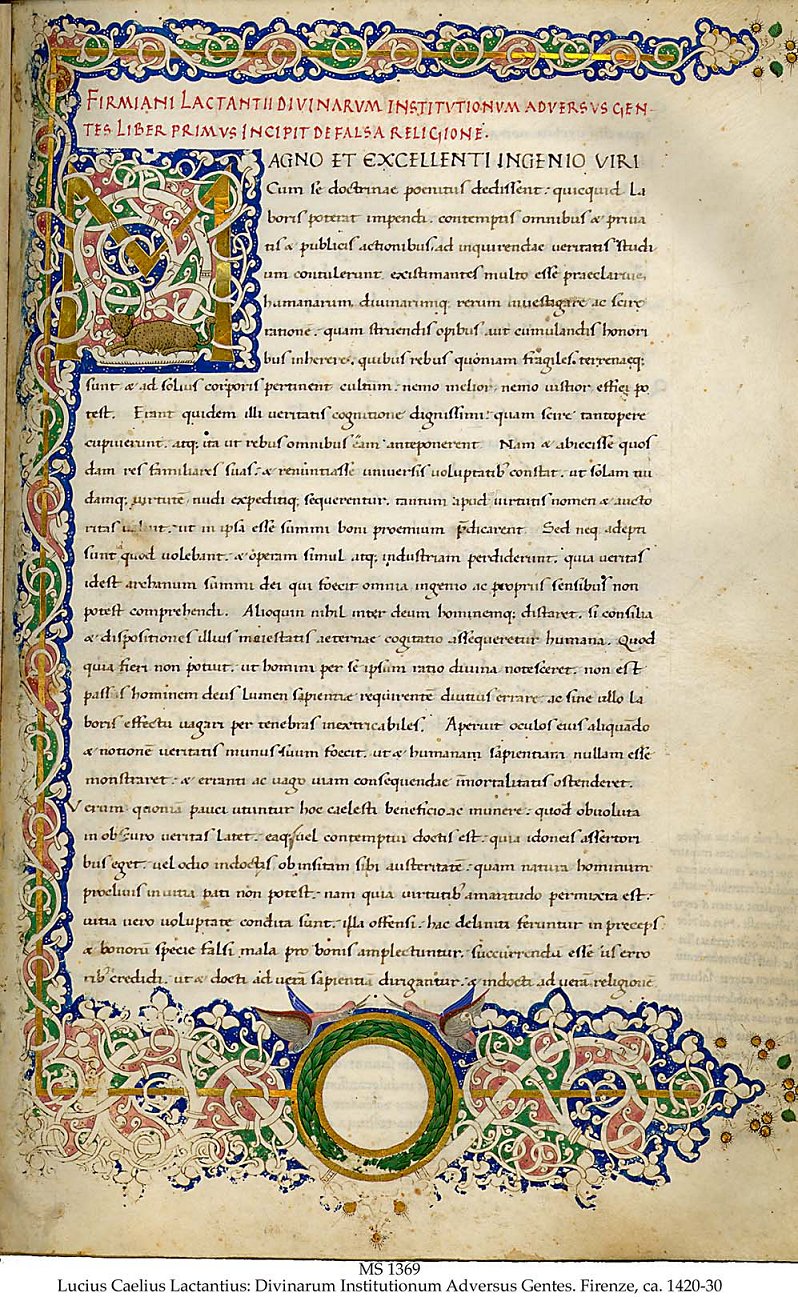 FIRMIANI LACTANTII DIVINARVM INSTITVTIONVM ADVERSVS GEN-
TES LIBER PRIMVS INCIPIT DE FALSA RELIGIONE.
MAGNO ET EXCELLENTI INGENIO VIRI
Cum se doctrinae poenitus dedissent: quicquid La
boris poterat impendi. contemptis omnibus & priua
tis & publicis actionibus, ad inquirendae ueritatis studi
um contulerunt existimantes multo esse praeclarius,
humanarum diuinarumq; rerum inuestigare ac scire
ratione: quam struendis opibus aut cumulandis honori
bus inherere. quibus rebus quoniam fragiles. terrenaeq;
sunt & ad solius corporis pertinent cultum: nemo melior nemo iustior effici po
test. Erant quidem illi ueritatis cognitione dignissimi: quam scire tantopere
cupiuerunt. atq; ita ut rebus omnibus eam anteponerent Nam & abiecisse quos
dam res familiares suas: & renuntiasse uniuersis uoluptatib constat. ut solam nu
damq; uirtutē nudi expeditiq; sequerentur. tantum apud uirtutis nomen & aucto
ritas ut in ipsa esse summi boni proemium p̄dicarent Sed neq adepti
sunt quod uolebant. & operam simul atq; industriam perdiderunt. quia ueritas
idest archanum summi dei qui foecit omnia ingenio ac propriis sensibus non
potest comprehendi. Alioquin nihil inter deum hominemq; distaret. si consilia
& dispositiones illius maiestatis aeternae cogitatio assequeretur humana. Quod
quia fieri non potuit. ut homini per se ipsum ratio diuina notesceret. non est
passus hominem deus Lumen sapientiae requirentē diutius errare. ac sine ullo La
boris effectu uagari per tenebras inextricabiles. Aperuit oculos eius aliquādo
& notionē ueritatis munus suum foecit. ut & humanam sapientiam nullam esse
monstraret: & erranti ac uago uiam consequendae īmortalitatis ostenderet.
Verum qūoniā pauci utuntur hoc caelesti beneficio ac munere: quod obuoluta
in obscuro ueritas Latet. eaq; uel contemptui doctis est: quia idoneis assertori
bus eget. uel odio indoctis ob insitam sibi austeritatē: quam natura hominum
procliuis in uitia pati non potest. nam quia uirtutib amaritudo permixta est.
uitia uero uoluptate condita sunt. illa offensi. hac deliniti feruntur in preceps
& bonorū specie falsi mala pro bonis amplectuntur. succurrendū esse iis erro
rib credidi. ut & docti ad uerā sapientiā dirigantur. & indocti ad uerā religionē
MS 1369
Lucius Caelius Lactantius: Divinarum Institutionum Adversus Gentes. Firenze, ca. 1420-30